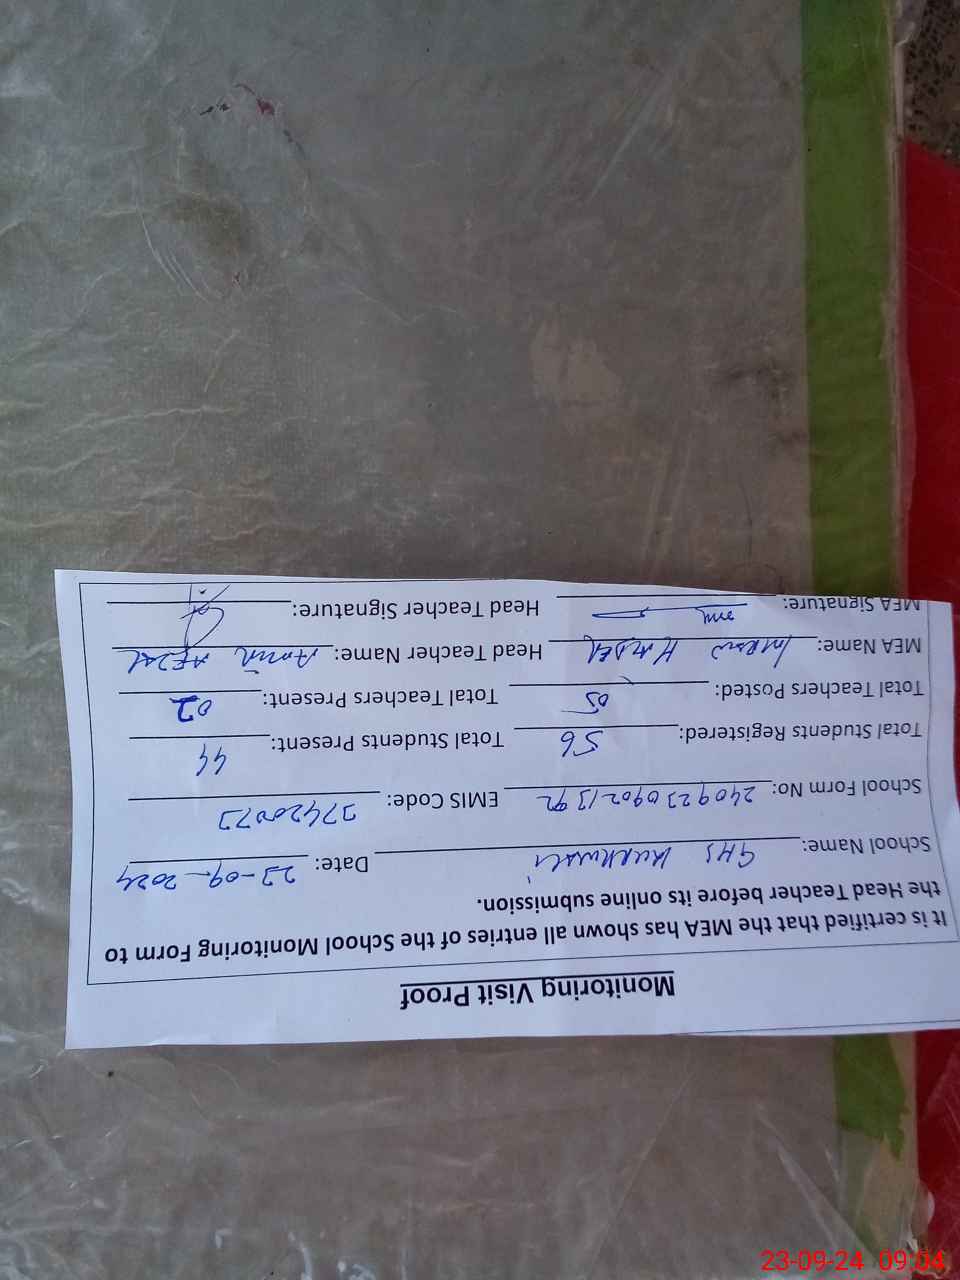 Monitoring Visit Proof
It is certified that the MEA has shown all entries of the School Monitoring Form to
the Head Teacher before its online submission.
School Name: GHS Date: 23-09-2024
School Form No: 24092309021392 EMIS Code: 37420073
Total Students Registered: 56 Total Students Present: 44
Total Teachers Posted: 05 Total Teachers Present: 02
MEA Name: Imran HAIDER Head Teacher Name: Amir AFZAL
MEA Signature: Head Teacher Signature:
23-09-24 09:04